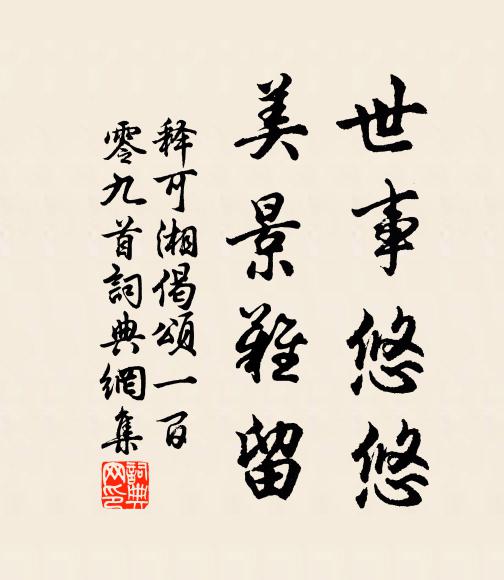 世事悠悠
美景難留
释可湘偈頌一百
零九首詞典網集
詞典网印